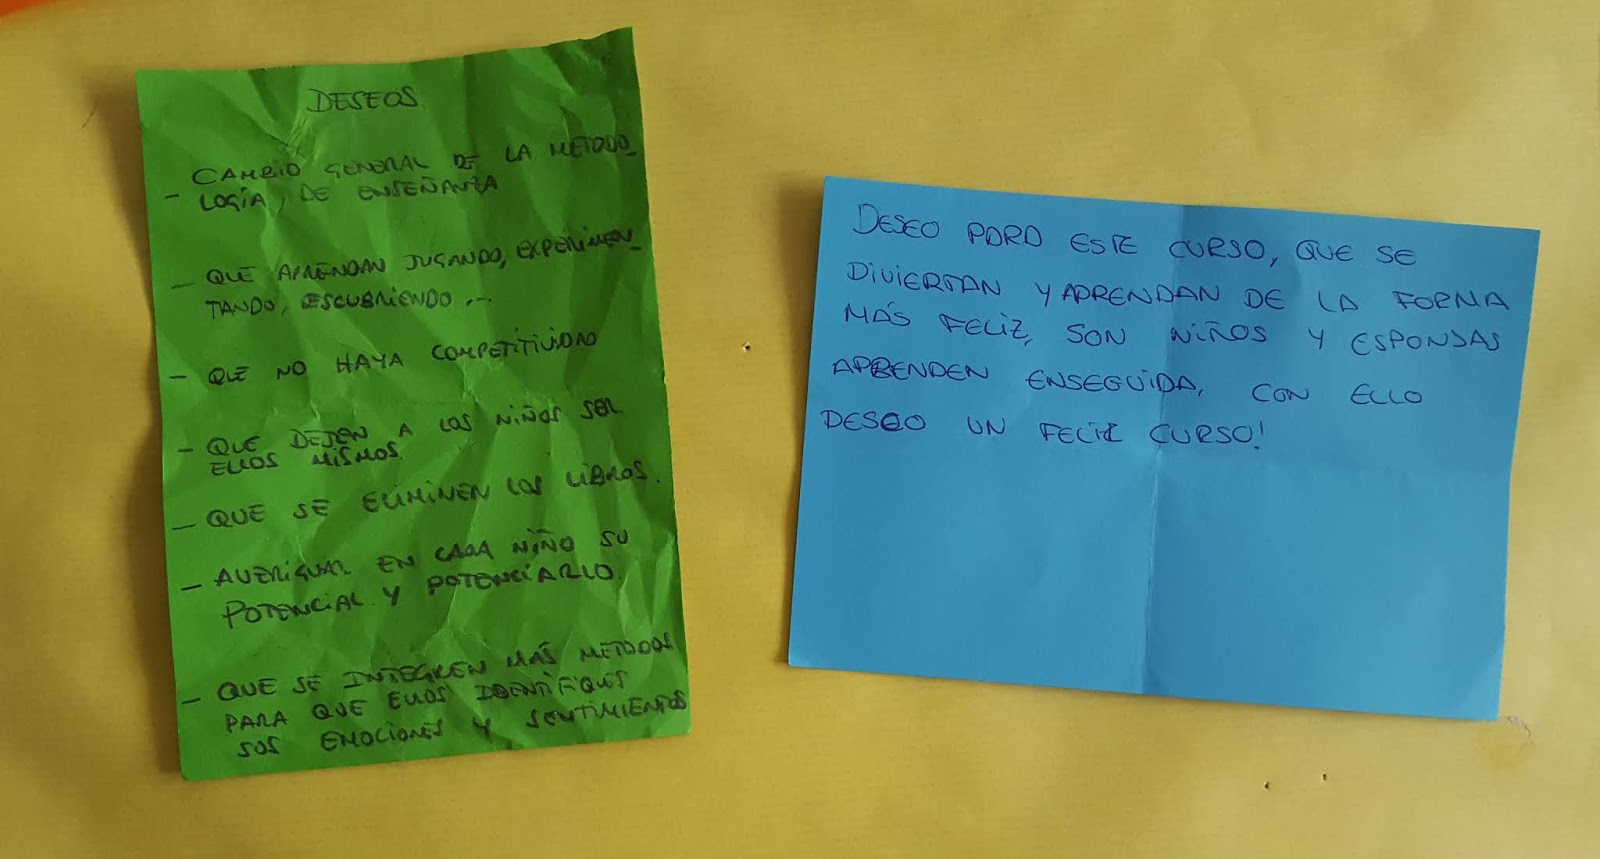 DESEOS
- CAMBIO GENERAL DE LA METODO_
LOGÍA, DE ENSEÑANZA
- QUE APRENDAN JUGANDO, EXPERIMEN_
TANDO, ESCUBRIENDO...
- QUE NO HAYA COMPETITIVIDAD
- QUE DEJEN A LOS NIÑOS SER
ELLOS MISMOS.
- QUE SE ELIMINEN LOS LIBROS.
- AVERIGUAR EN CADA NIÑO SU
POTENCIAL Y POTENCIARLO.
- QUE SE INTEGREN MÁS METODOS
PARA QUE ELLOS IDENTIFIQUES
SUS EMOCIONES Y SENTIMIENTOS
DESEO PARA ESTE CURSO, QUE SE
DIVIERTAN Y APRENDAN DE LA FORMA
MÁS FELIZ, SON NIÑOS Y ESPONJAS
APRENDEN ENSEGUIDA, CON ELLO
DESEO UN FELIZ CURSO!